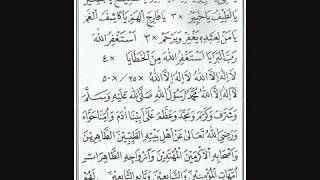 يَالَطِيْفُ يَاخَبِيْرُ ×٣ يَافَارِجَ الْهَمِّ يَاكَاشِفَ الْغَمِّ
يَامَنْ لِعَبْدِهِ يَغْفِرُ وَيَرْحَمُ ×٣ اَسْتَغْفِرُ اللهَ
رَبَّ الْبَرَايَا اَسْتَغْفِرُ اللهَ مِنَ الْخَطَايَا ×٤
لَا اِلٰهَ اِلَّا اللهُ لَا اِلٰهَ اِلَّا اللهُ ×٢٥/ ×٥٠
لَا اِلٰهَ اِلَّا اللهُ مُحَمَّدٌ رَسُوْلُ اللهِ صَلَّى اللهُ عَلَيْهِ وَسَلَّمَ
وَشَرَّفَ وَكَرَّمَ وَمَجَّدَ وَعَظَّمَ عَلٰى اَبِيْنَا اٰدَمَ وَاُمِّنَا حَوَّاءَ
وَرَضِيَ اللهُ تَعَالٰى عَنْ اَهْلِ بَيْتِهِ الطَّيِّبِيْنَ الطَّاهِرِيْنَ
وَاَصْحَابِهِ الْاَكْرَمِيْنَ الْمُهْتَدِيْنَ وَاَزْوَاجِهِ الطَّاهِرَاتِ
اُمَّهَاتِ الْمُؤْمِنِيْنَ وَالتَّابِعِيْنَ وَتَابِعِ التَّابِعِيْنَ لَهُمْ